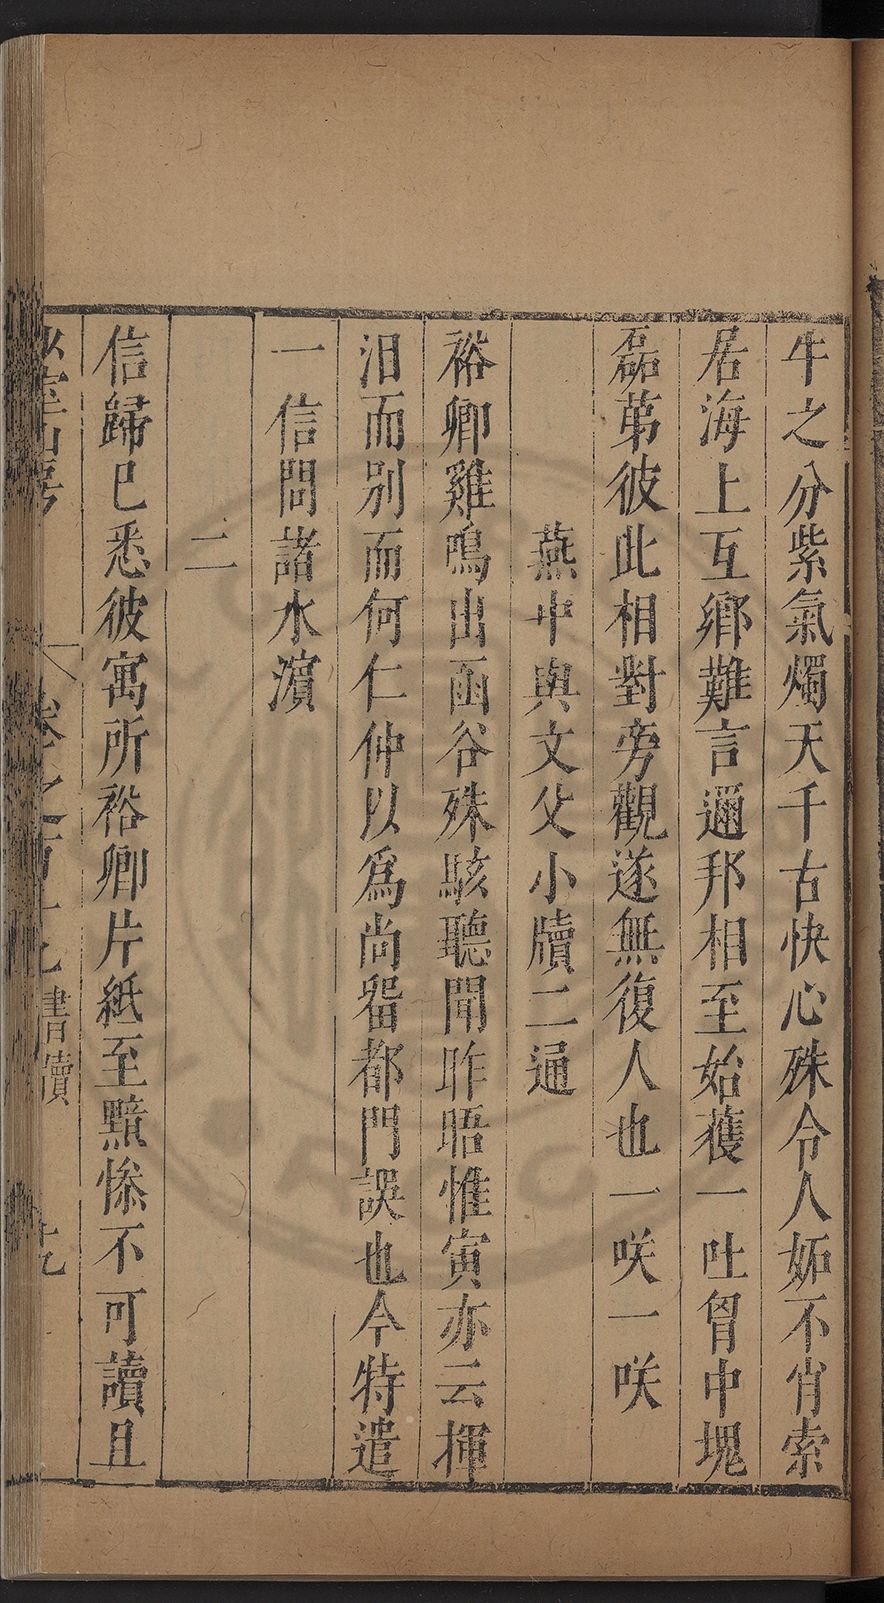 牛之分紫氣燭天千古快心殊令人妬不肖索
居海上互鄉難言邇邦相至始獲一吐胷中塊
磊苐彼此相對旁觀遂無復人也一咲一咲
燕中與文父小牘二通
裕卿雞鳴出函谷殊駭聽聞昨晤惟寅亦云揮
汨而別而何仁仲以爲尚畱都門誤也今特遣
一信問諸水濵
二
信歸已悉彼寓所裕卿片紙至黯慘不可讀且
卷之百十九書牘